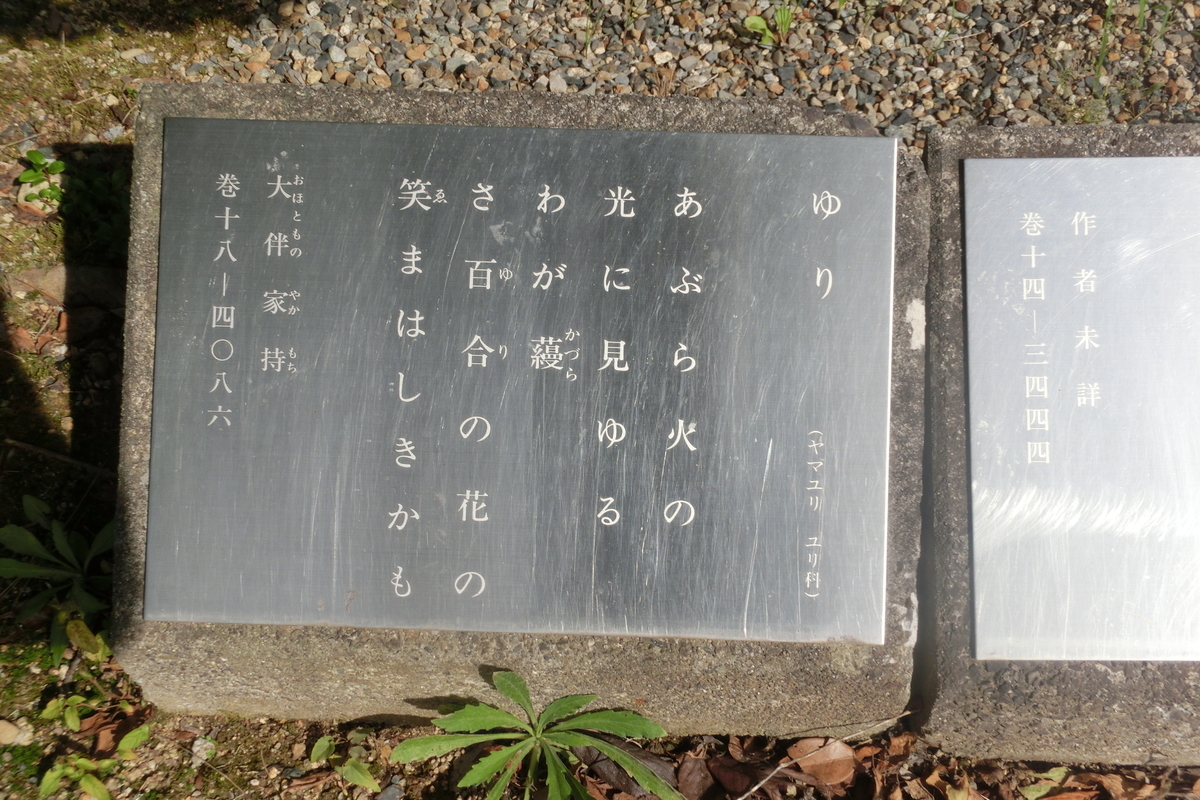 ゆり
（ヤマユリ ユリ科）
あぶら火の
光に見ゆる
わが蘰
かづら
さ百合の花の
ゆり
笑まはしきかも
ゑ
大伴家持
おほとものやかもち
巻十八―四〇八六
作者未詳
巻十四―三四四四